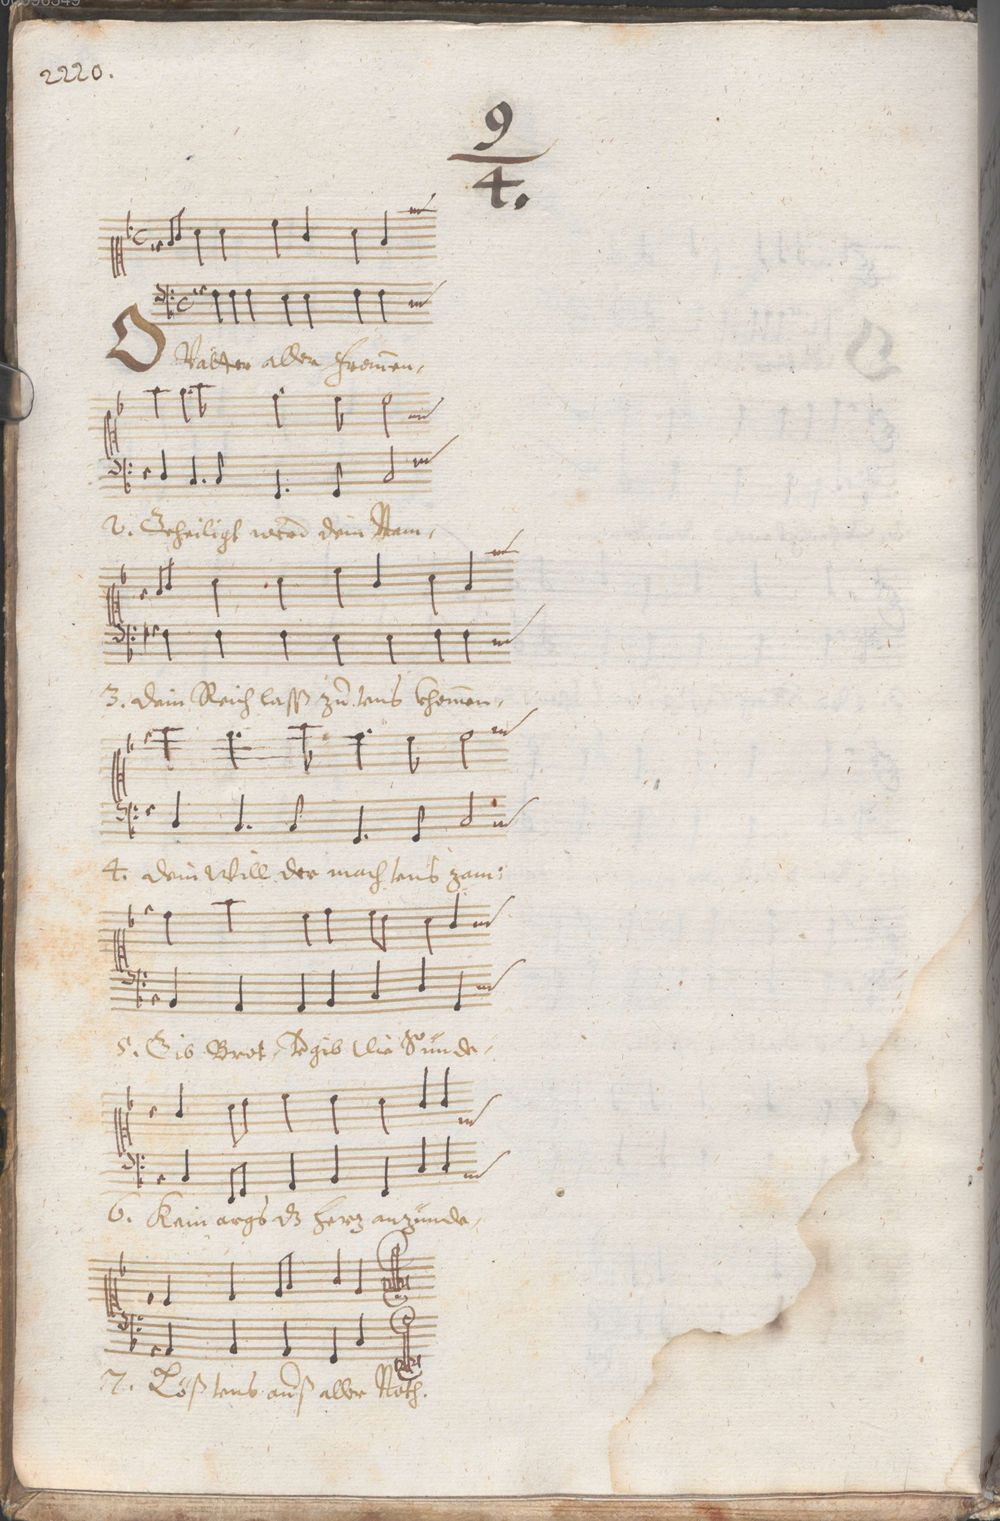 2220.
9
4.
O Vatter aller fromen,
2. Geheiligt werd dein Nam,
3. dein Reich lass zu uns khomen,
4. dein Will der mach uns zam:
5. Gib Brot, vergib die Sünde,
6. Kein args dz herz anzünde,
7. Löß uns auß aller Noth.